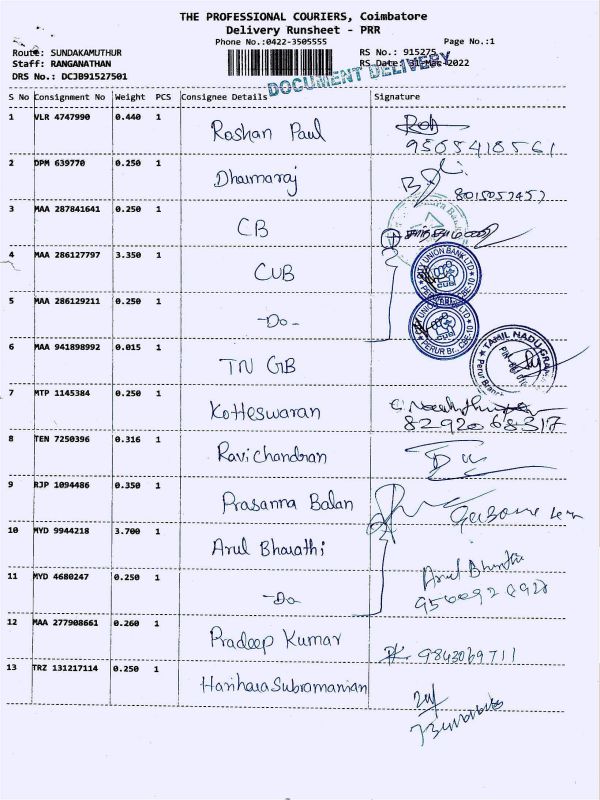 THE PROFESSIONAL COURIERS, Coimbatore
Delivery Runsheet - PRR
Phone No.:0422-3505555 Page No.:1
Route: SUNDAKAMUTHUR RS No.: 915275
Staff: RANGANATHAN RS Date: 31-Mar-2022
DRS No.: DCJB91527501
DOCUMENT DELIVERY
S No Consignment No Weight PCS Consignee Details Signature
1 VLR 4747990 0.440 1 Roshan Paul
2 DPM 639770 0.250 1 Dharmaraj
3 MAA 287841641 0.250 1 CB
4 MAA 286127797 3.350 1 CUB
CITY UNION BANK LTD
5 MAA 286129211 0.250 1 -Do-
6 MAA 941898992 0.015 1 TN GB
TAMIL NADU GRAMA
7 MTP 1145384 0.250 1 Kotteswaran
8292068317
8 TEN 7250396 0.316 1 Ravi Chandran
9 RJP 1094486 0.350 1 Prasanna Balan
10 MYD 9944218 3.700 1 Arul Bharathi
11 MYD 4680247 0.250 1 -Do-
12 MAA 277908661 0.260 1 Pradeep Kumar
9843069711
13 TRZ 131217114 0.250 1 Harihara Subramanian